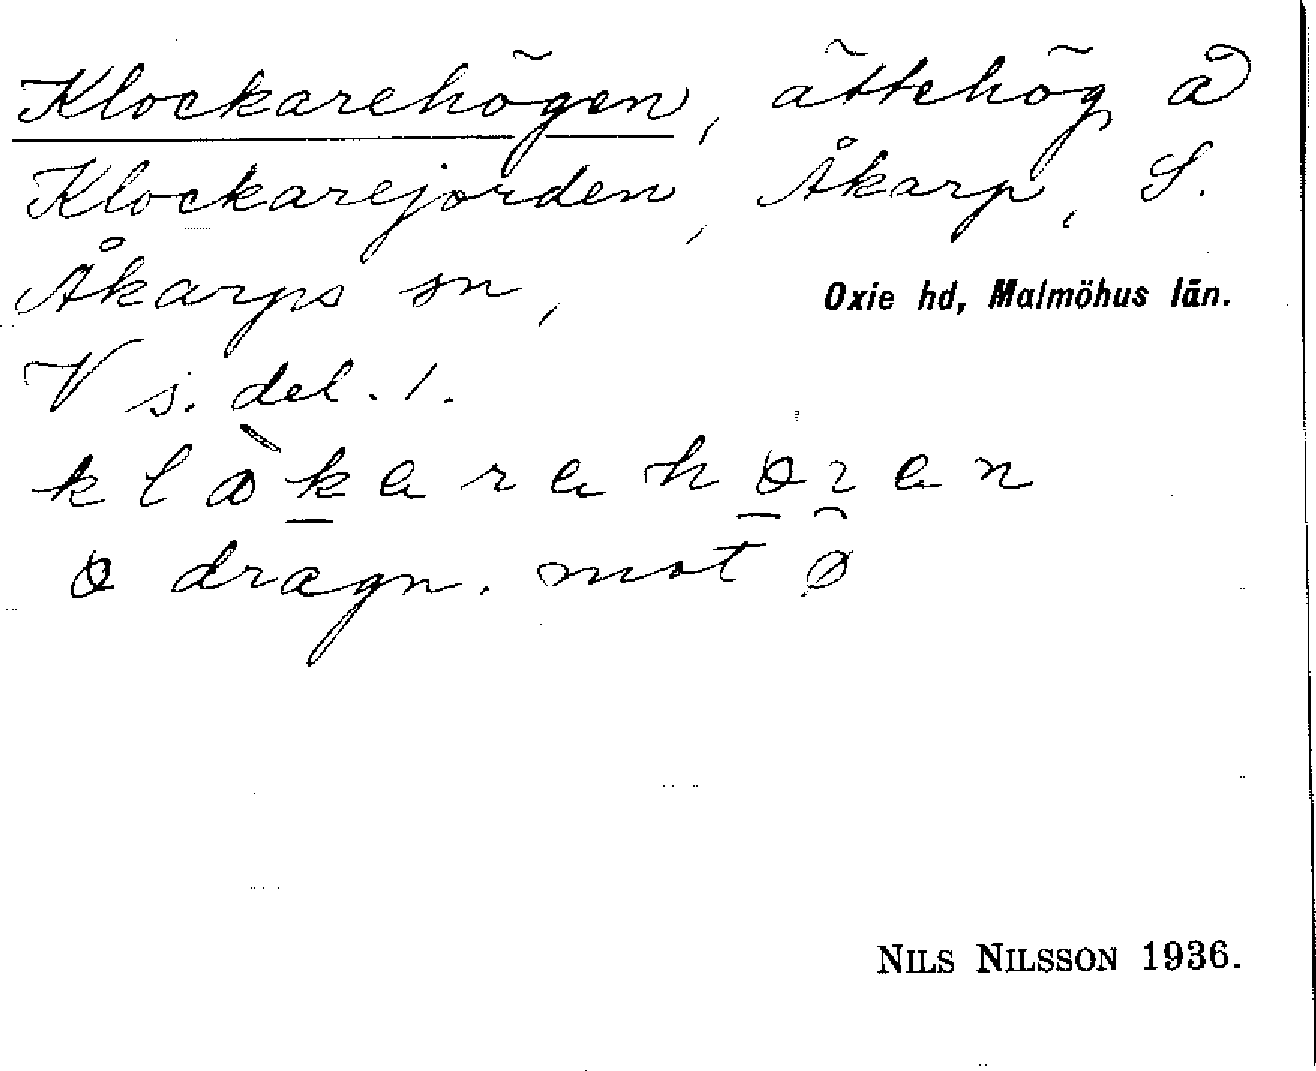 Klockarehögen, ättehög å
Klockarejorden, Åkarp, S.
Åkarps sn,
Oxie hd, Malmöhus län.
V s. del. 1.
o dragn. mot ø
NILS NILSSON 1936.